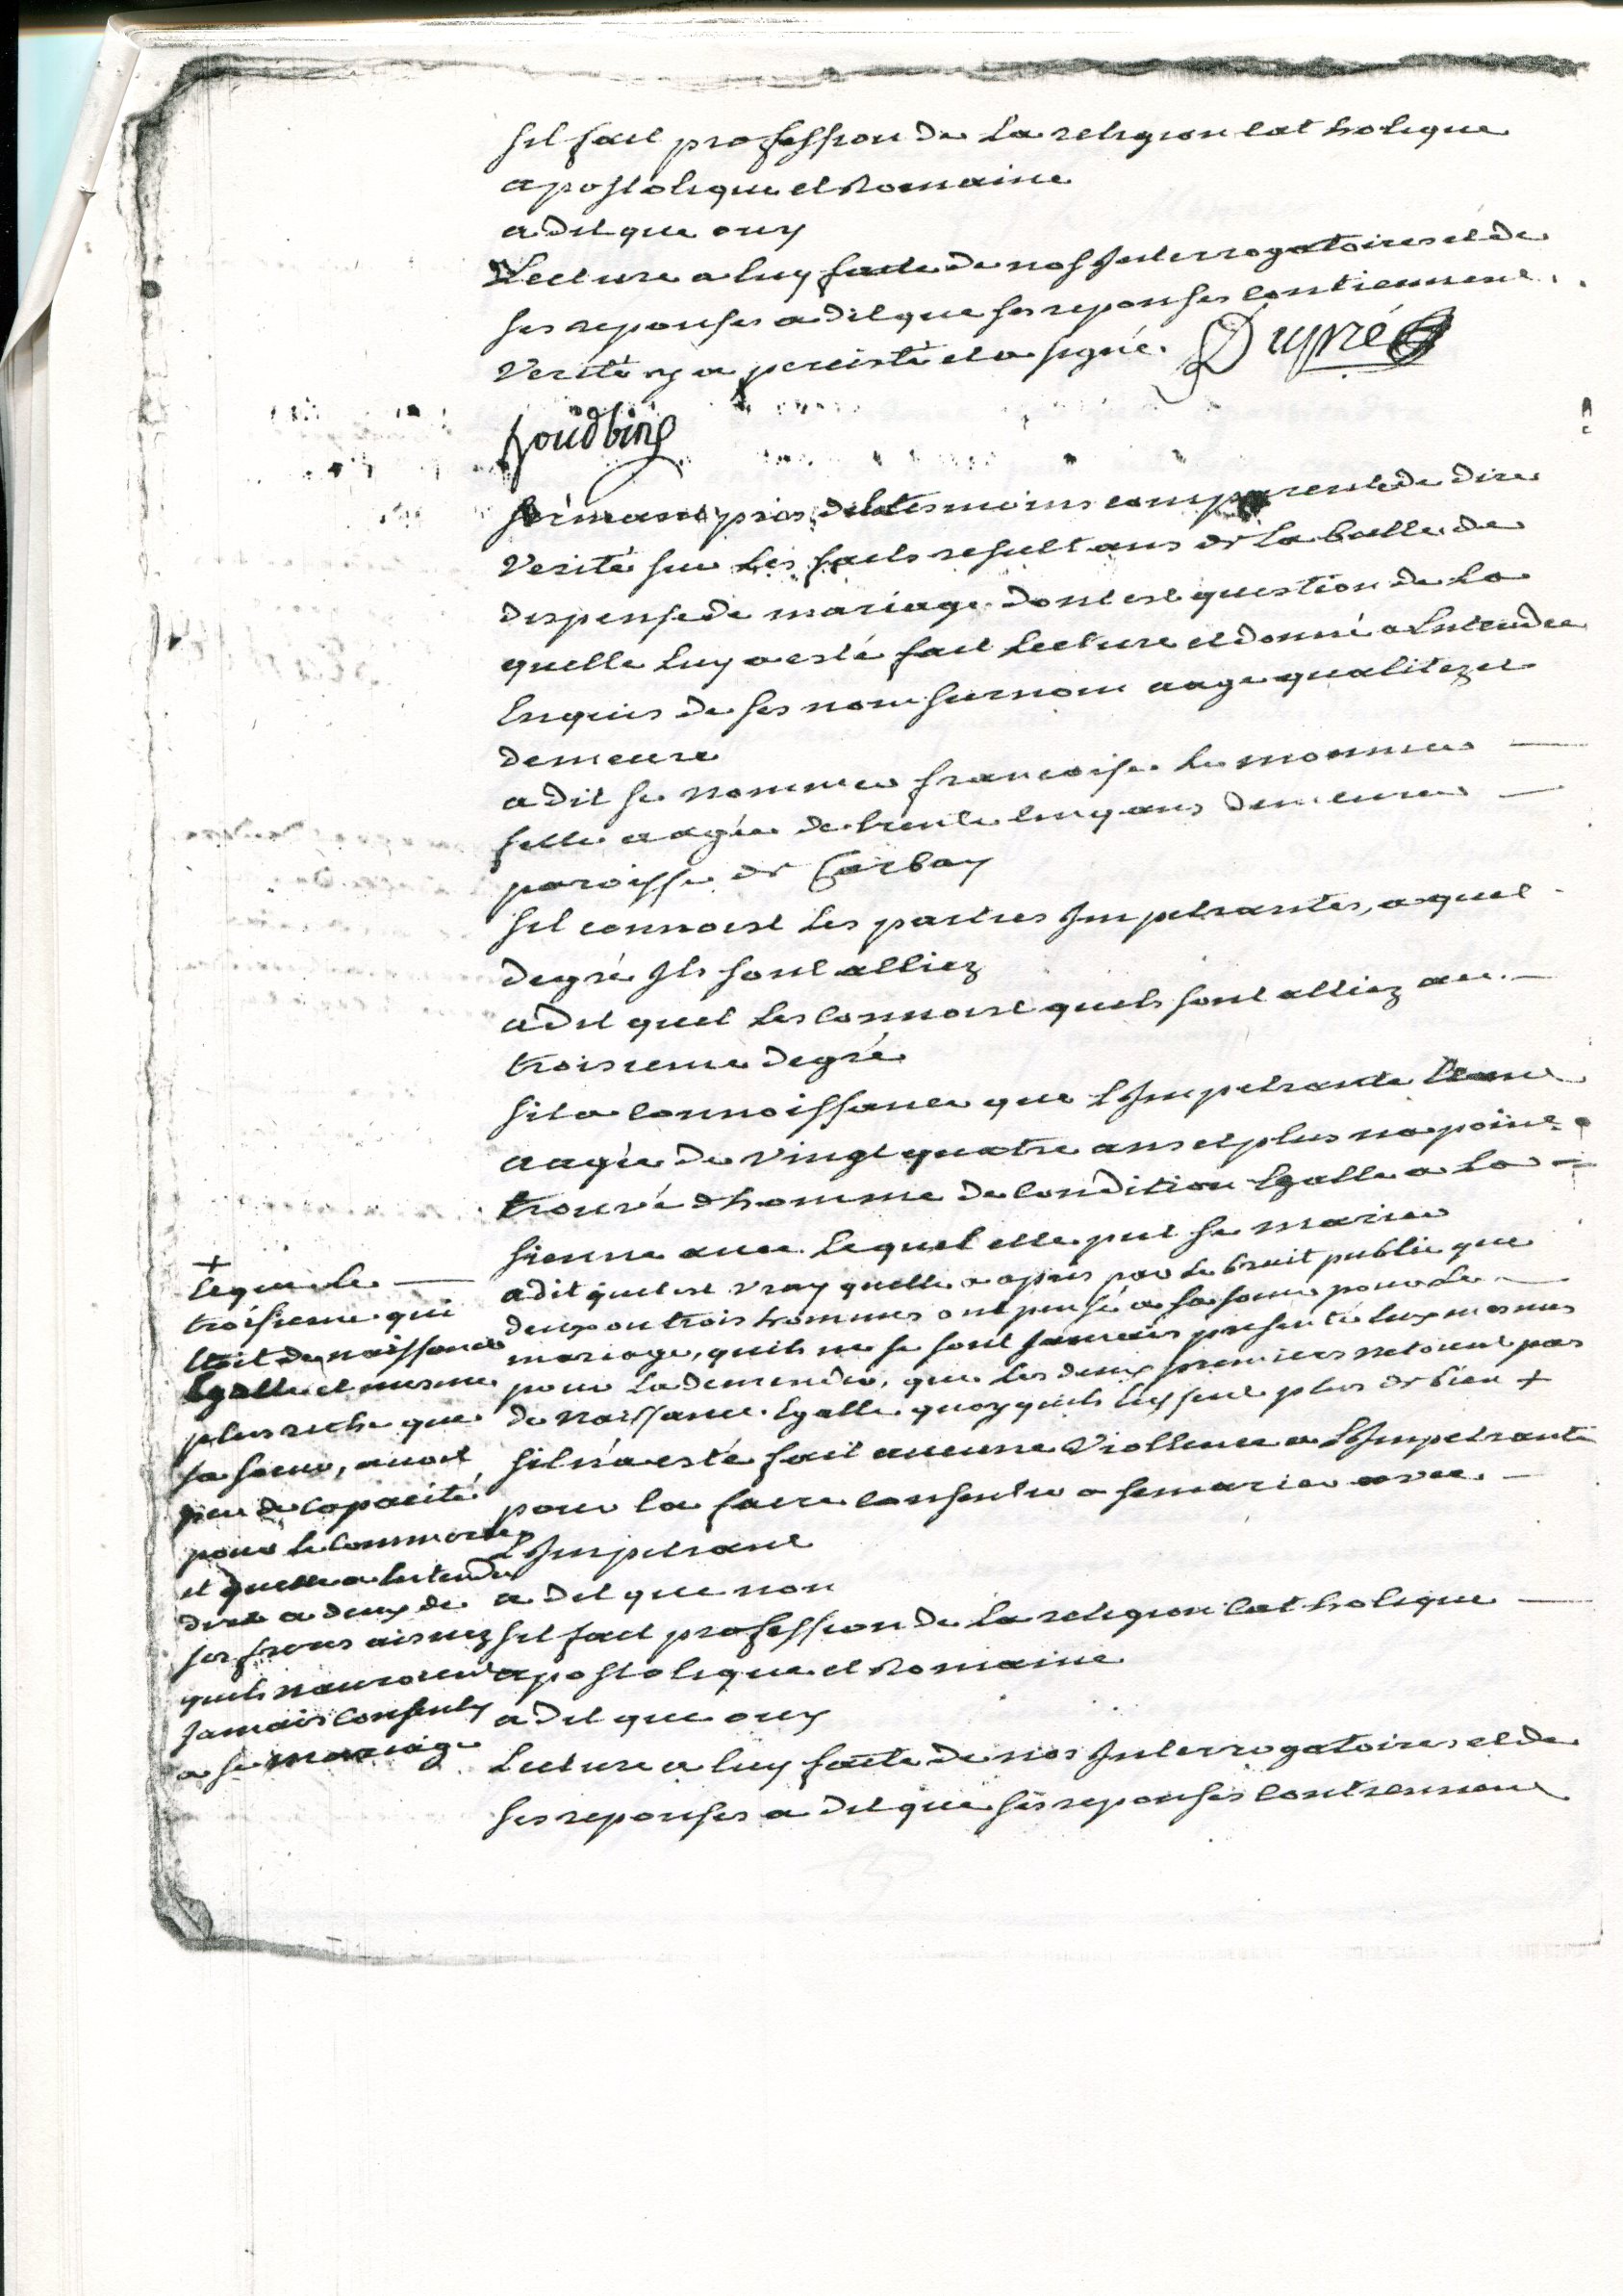 sil fait profession de la religion catholique
apostolique et Romaine
a dit que ouy
Lecture a luy faite de nos Interrogatoires et de
ses reponses a dit que ses reponses contiennent
verité y a percisté et a signé. Dupré
serment pris du temoins comparent de dire
verité sur les faits resultans de la bulle de
dispense de mariage dont est question de la
quelle luy a esté fait lecture et donné a Entendre
Enquis de ses nom surnom aage qualitez et
demeure
a dit se nommer francoise Le monnier
fille aagée de trente cinq ans demeure
paroisse de Carbay
sil connoist les parties Impetrantes, a quel
degré Ils sont alliez
a dit quel les connoist quils sont alliez au
troisieme degré
sil a connoissance que LImpetrante
aagée de vingt quatre ans et plus na point
trouvé dhomme de condition Egalle a la
sienne avec lequel elle put se marier
a dit quil est vray quelle a apris par le bruit public que
deux ou trois hommes ont pensé a sa soeur pour le
mariage, quils ne se sont Jamais presenté Eux mesmes
pour la demender, que les deux premiers netoient pas
de naissance Egalle quoy quils Eussent plus de bien +
sil na esté fait aucune violence a LImpetrante
pour la faire consentir a se marier avec
LImpetrant
a dit que non
sil fait profession de la religion catholique
apostolique et Romaine
a dit que ouy
Lecture a luy faite de nos Interrogatoires et de
ses reponses a dit que ses reponses contiennent
+
troisieme qui
Etoit de naissance
Egalle et mesme
plus riche que
sa soeur, avoit
peu de capacité
pour le commerce
et quelle a Entendu
dire a deux de
ses freres aisnez
quils nauroient
Jamais consenty
a se mariage